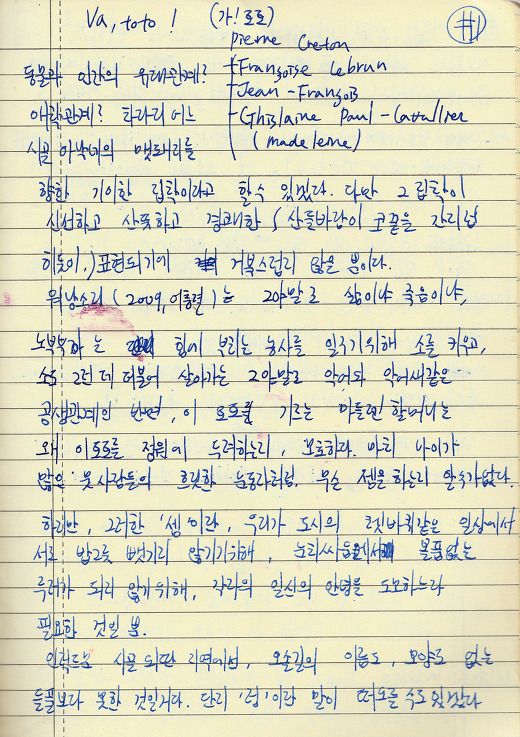 Va, toto ! (가! 토토) #1
Pierre Creton
동물과 인간의 유대관계? - Françoise Lebrun
- Jean-François
애착관계? 차라리 어느 - Ghislaine Paul-Cavallier
시골 아낙네의 멧돼지를 (madeleine)
향한 기이한 집착이라고 할 수 있겠다. 다만 그 집착이
신선하고 산뜻하고 경쾌한 (산들바람이 코끝을 간지럽
히듯이,) 표현되기에 거북스럽지 않을 뿐이다.
워낭소리 (2009, 이충렬)는 그야말로 삶이냐 죽음이냐,
노부부는 힘에 부치는 농사를 일구기위해 소를 키우고,
소도 그런 데 더불어 살아가는 그야말로 악어와 악어새같은
공생관계인 반면, 이 토토를 기르는 마들렌 할머니는
왜 이 토토를 정원에 두려하는지, 모호하다. 마치 나이가
많은 뭇사람들의 흐릿한 눈동자처럼. 무슨 셈을 하는지 알 수가 없다.
하지만, 그러한 '셈'이란, 우리가 도시의 쳇바퀴같은 일상에서
서로 밥그릇 뺏기지 않기위해, 눈치싸움에서 볼품없는
루저가 되지 않기위해, 각자의 일신의 안녕을 도모하느라
필요한 것일 뿐.
인적드문 시골 외딴 지역에선, 오솔길의 이름도, 모양도 없는
들풀보다 못한 것일거다. 단지 '정'이란 말이 떠오를 수도 있겠다